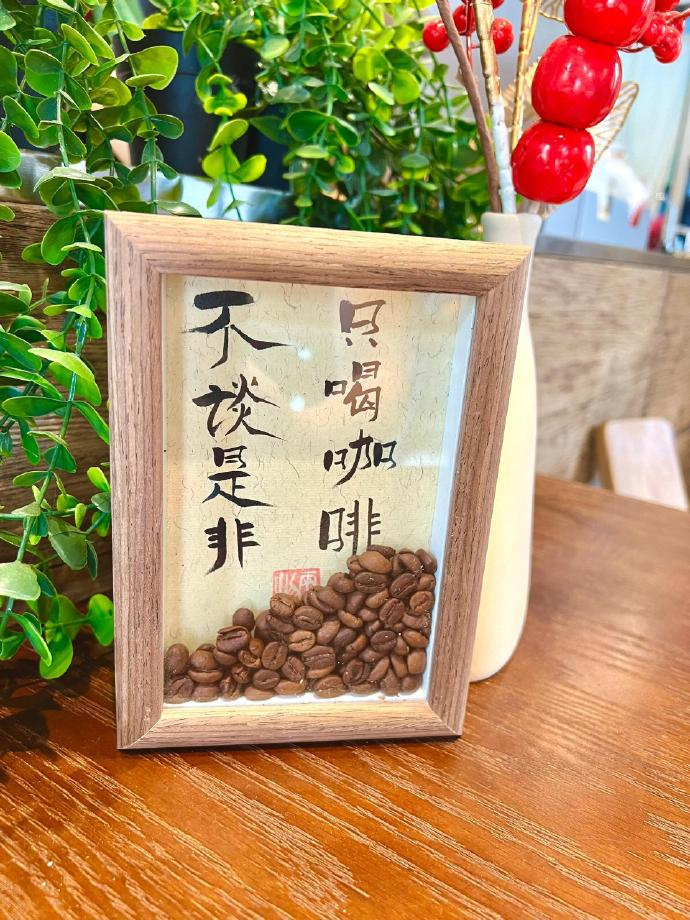 只喝咖啡
不谈是非